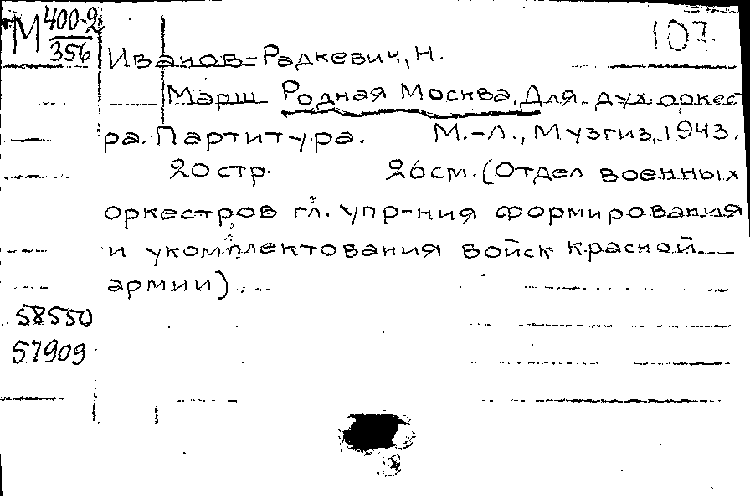 М 400-2
356
107
Иванов-Радкевич, Н.
Марш Родная Москва. Для дух. оркест
ра. Партитура. М.-Л., Музгиз, 1943.
20 стр. 26 см. (Отдел военных
оркестров гл. упр-ния формирования
и укомплектования войск Красной
армии).
58550
57909